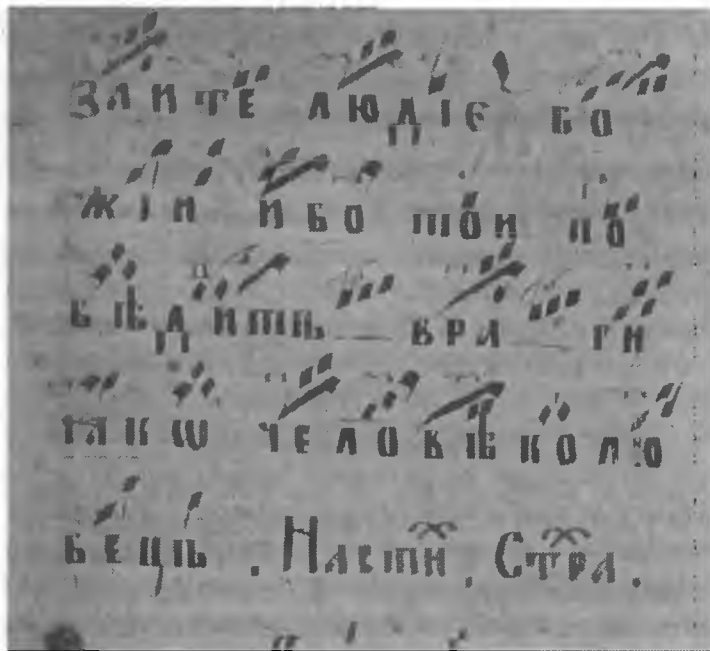 ЗАИТЕ ЛЮДІЄ БО
ЖІИ ИБО ТОИ ПО
БѢДИТЬ ВРА ГИ
ꙖКѠ ЧЕЛОВѢКОЛЮ
БЕЦЬ . НАСТИ . СТРА .